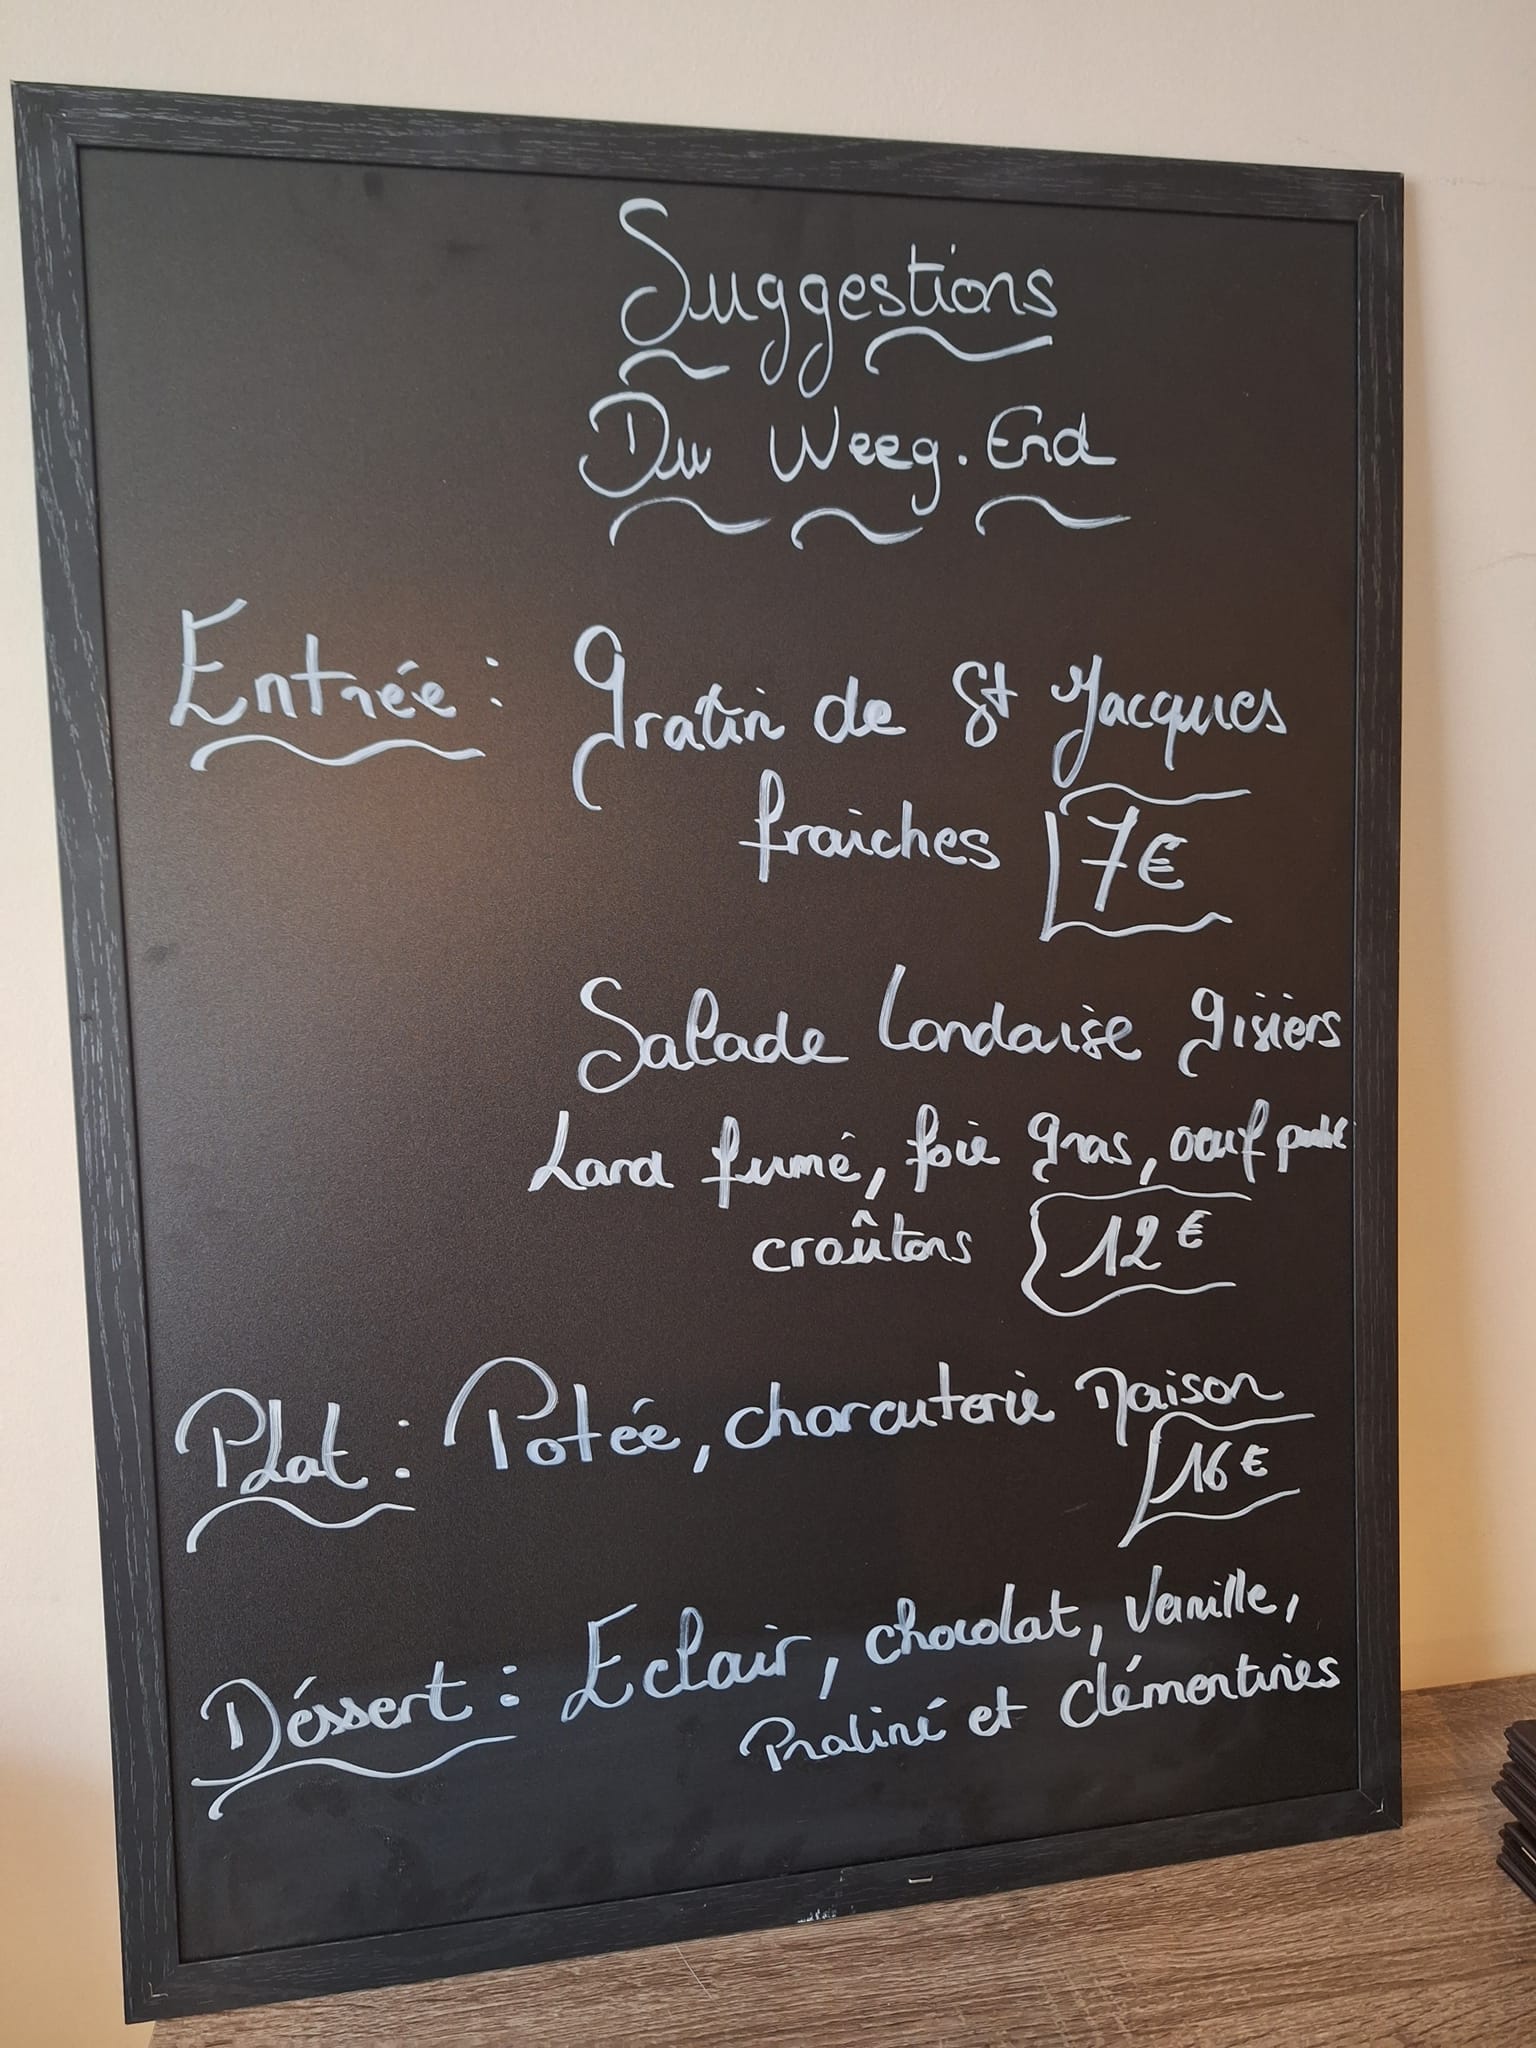 Suggestions
Du Weeg.End
Entrée : Gratin de St Jacques
fraiches 7€
Salade Landaise gisiers
Lard fumé, foie gras, oeuf poché
croûtons 12€
Plat : Potée, charcuterie Maison
16€
Déssert : Eclair, chocolat, Vanille,
Praliné et clémentines